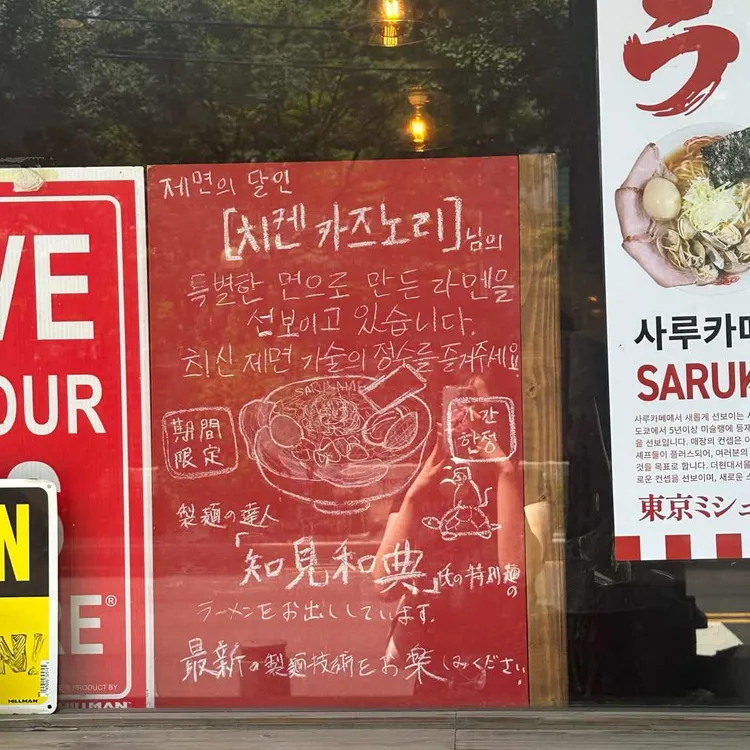 제면의 달인
[치켄 카즈노리]님의
특별한 면으로 만든 라멘을
선보이고 있습니다.
최신 제면 기술의 정수를 즐겨주세요
SARUKAME
期間
限定
기간
한정
製麺の達人
「知見和典」氏の特別麺の
ラーメンをお出ししています。
最新の製麺技術をお楽しみください。
VE
OUR
RE®
PRODUCT BY
HILLMAN™
N
N!
HILLMAN
ら
사루카메
SARUK
사루카메에서 새롭게 선보이는
도쿄에서 5년이상 미슐랭에 등재
을 선보입니다. 매장의 컨셉은
셰프들이 플러스되어, 여러분의
것을 목표로 합니다. 더현대서울
로운 컨셉을 선보이며, 새로운
東京ミシュ